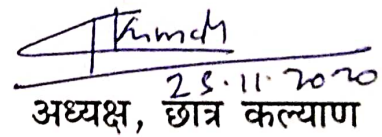 25.11.2020
अध्यक्ष, छात्र कल्याण